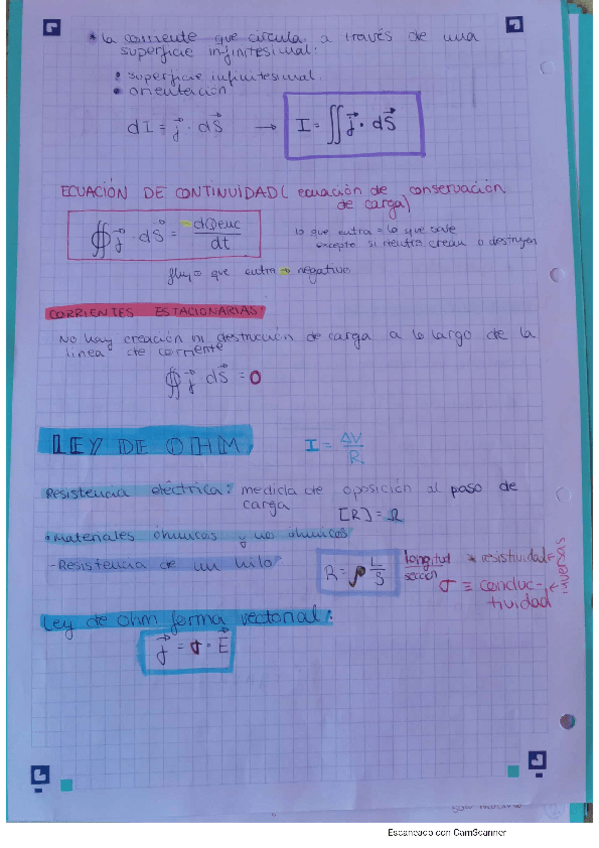 * la corriente que circula a través de una
superficie infinitesimal:
• superficie infinitesimal.
• orientación
dI = j⃗ · dS⃗ → I = ∬ j⃗ · dS⃗
ECUACIÓN DE CONTINUIDAD ( ecuación de conservación
de carga)
∯ j⃗ · dS⃗ = -dQenc/dt
lo que entra = lo que sale
excepto si dentro crean o destruyen
flujo que entra → negativo
CORRIENTES ESTACIONARIAS
No hay creación ni destrucción de carga a lo largo de la
línea de corriente
∯ j⃗ dS⃗ = 0
LEY DE OHM I = ΔV/R
Resistencia eléctrica: medida de oposición al paso de
carga [R] = Ω
• materiales óhmicos y no óhmicos
- Resistencia de un hilo R = ρ L/S longitud sección * resistividad
σ ≡ conduc-
tividad
inversas
Ley de Ohm forma vectorial:
j⃗ = σ · E⃗
Escaneado con CamScanner